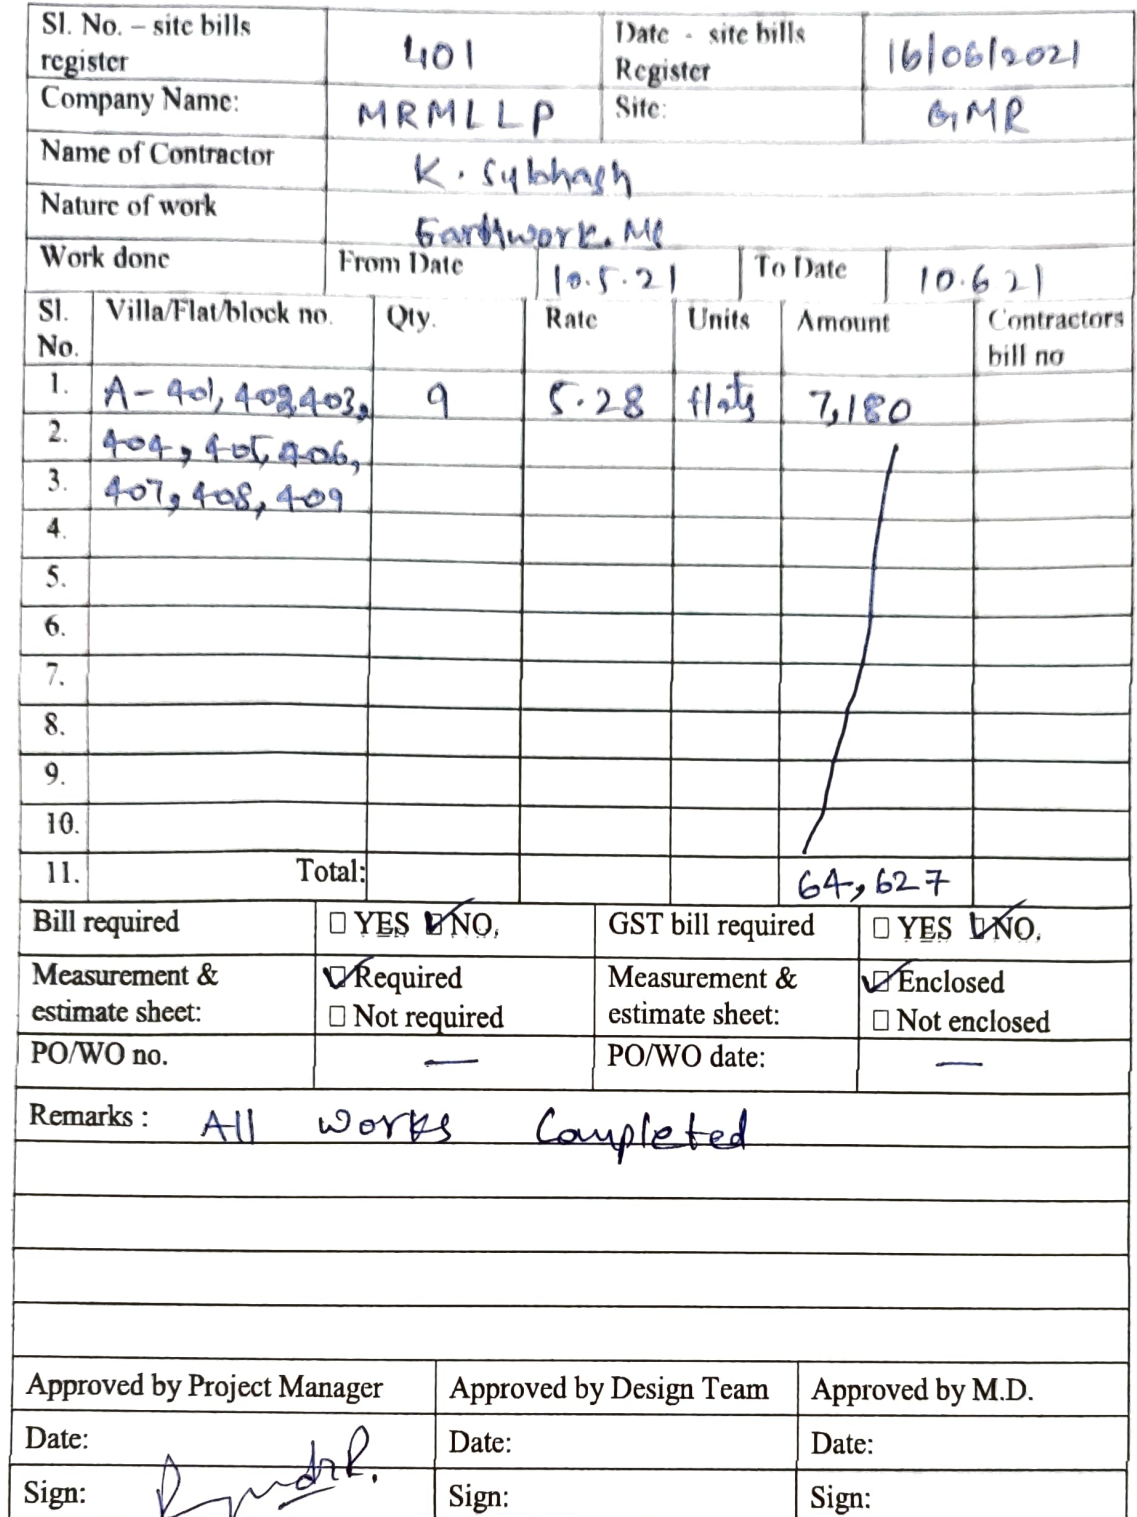 Sl. No. – site bills register 401 Date - site bills Register 16/06/2021
Company Name: MRMLLP Site: GMR
Name of Contractor K. Subhash
Nature of work Earthwork.
Work done From Date 10.5.21 To Date 10.6 21
Sl. No. Villa/Flat/block no. Qty. Rate Units Amount Contractors bill no
1. A- 401, 402, 403, 9 5.28 flats 7,180
2. 404, 405, 406,
3. 407, 408, 409
4.
5.
6.
7.
8.
9.
10.
11. Total: 64,627
Bill required YES NO. GST bill required YES NO.
Measurement & estimate sheet: Required Not required Measurement & estimate sheet: Enclosed Not enclosed
PO/WO no. — PO/WO date: —
Remarks : All works Completed
Approved by Project Manager Approved by Design Team Approved by M.D.
Date: Date: Date:
Sign: Sign: Sign: